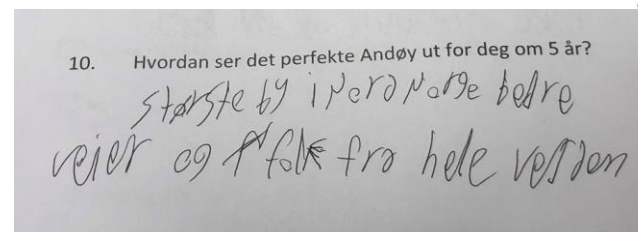 10. Hvordan ser det perfekte Andøy ut for deg om 5 år?
største by i Nord Norge bedre
veier og folk fra hele verden